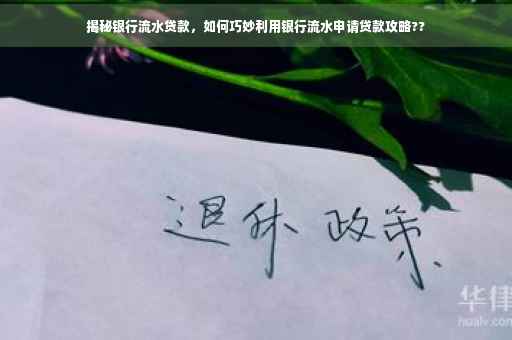 揭秘银行流水贷款，如何巧妙利用银行流水申请贷款攻略??
退休政策
华律
hualv.com